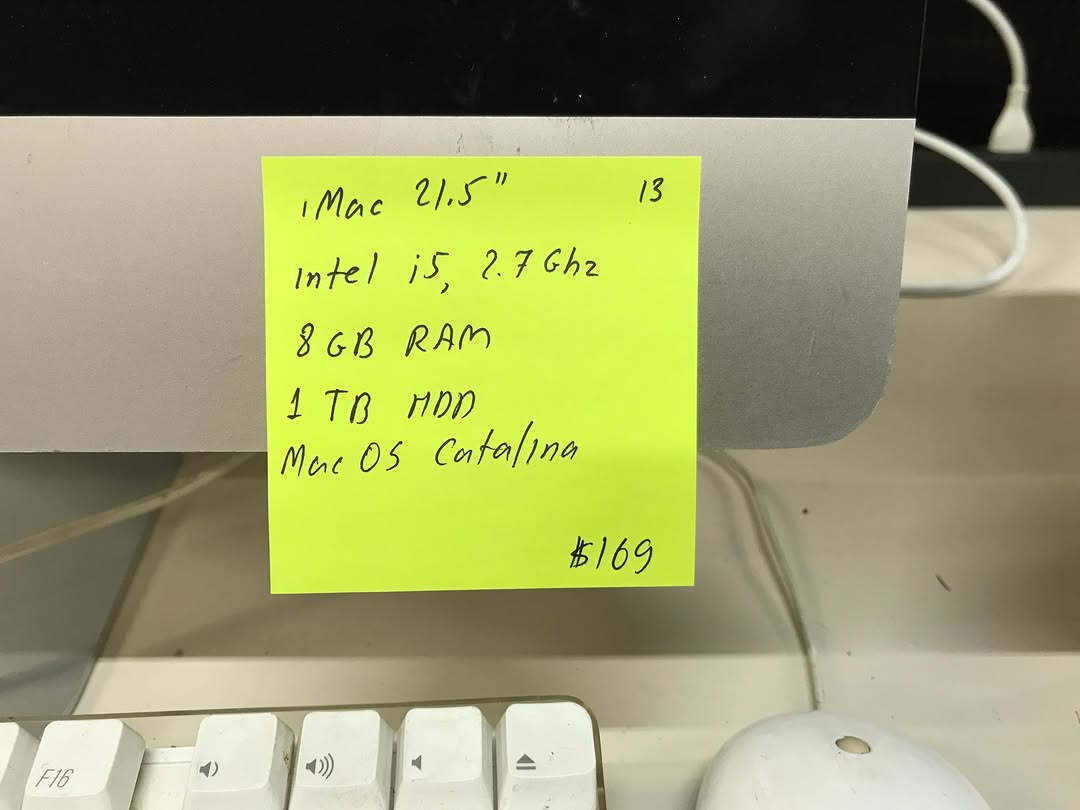 iMac 21.5" 13
intel i5, 2.7 Ghz
8 GB RAM
1 TB HDD
Mac OS Catalina
$169
F16